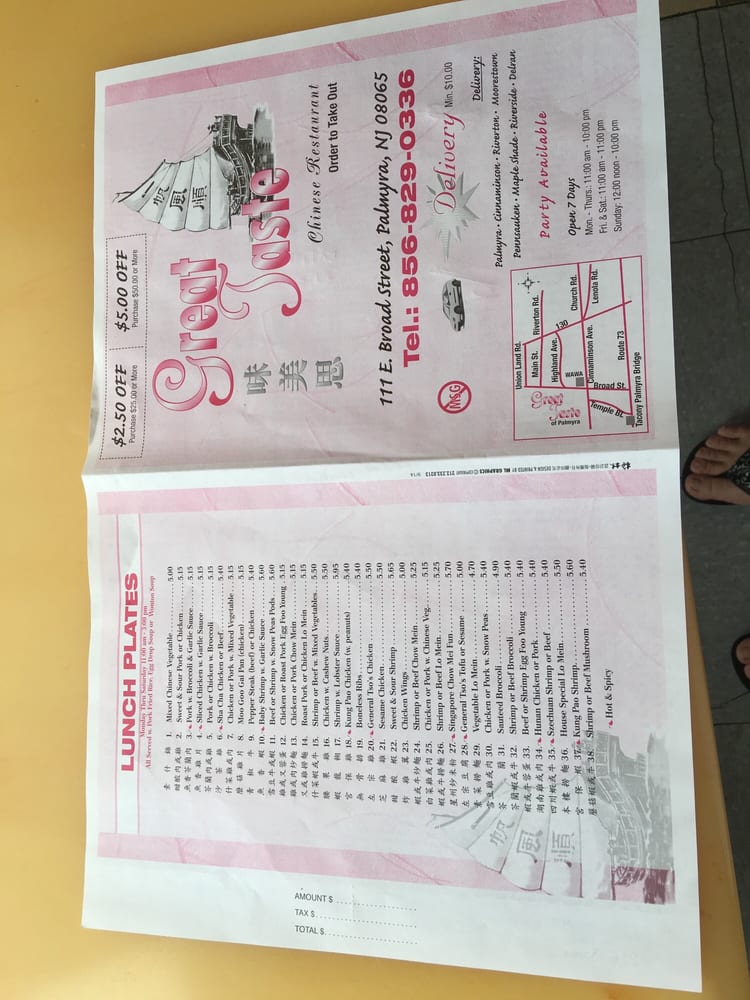 $2.50 OFF
Purchase $25.00 or More
$5.00 OFF
Purchase $50.00 or More
順風帆
Great
Taste
味美思
Chinese Restaurant
Order to Take Out
111 E. Broad Street, Palmyra, NJ 08065
Tel.: 856-829-0336
MSG
Delivery Min. $10.00
Delivery:
Palmyra • Cinnaminson • Riverton • Moorestown
Pennsauken • Maple Shade • Riverside • Delran
Party Available
Open 7 Days
Mon. - Thurs.: 11:00 am - 10:00 pm
Fri. & Sat.: 11:00 am - 11:00 pm
Sunday: 12:00 noon - 10:00 pm
Union Land Rd.
Riverton Rd.
Main St.
130
Church Rd.
Highland Ave.
WAWA
Cinnaminson Ave.
Lenola Rd.
Great Taste
of Palmyra
Broad St.
Route 73
Temple Bl.
Tacony Palmyra Bridge
DESIGN & PRINTED BY ML GRAPHICS © COPYRIGHT 212.233.8213 9/14
LUNCH PLATES
Monday Thru Saturday 11:00 am - 3:00 pm
All Served w. Pork Fried Rice, Egg Drop Soup or Wonton Soup
素什錦 1. Mixed Chinese Vegetable 5.00
甜酸肉或雞 2. Sweet & Sour Pork or Chicken 5.15
魚香芥蘭肉 3. Pork w. Broccoli & Garlic Sauce 5.15
魚香雞片 4. Sliced Chicken w. Garlic Sauce 5.15
芥蘭肉或雞 5. Pork or Chicken w. Broccoli 5.15
沙茶雞 6. Sha Cha Chicken or Beef 5.40
什菜雞或肉 7. Chicken or Pork w. Mixed Vegetable 5.15
蘑菇雞片 8. Moo Goo Gai Pan (chicken) 5.15
青椒牛 9. Pepper Steak (beef) or Chicken 5.40
魚香蝦 10. Baby Shrimp w. Garlic Sauce 5.60
雪豆牛或蝦 11. Beef or Shrimp w. Snow Peas Pods 5.60
雞或叉蓉蛋 12. Chicken or Roast Pork Egg Foo Young 5.15
雞或肉炒麵 13. Chicken or Pork Chow Mein 5.15
叉或雞撈麵 14. Roast Pork or Chicken Lo Mein 5.15
什菜蝦或牛 15. Shrimp or Beef w. Mixed Vegetables 5.50
腰果雞 16. Chicken w. Cashew Nuts 5.50
蝦龍糊 17. Shrimp w. Lobster Sauce 5.95
宮保雞 18. Kung Pao Chicken (w. peanuts) 5.40
無骨排 19. Boneless Ribs 5.40
左宗雞 20. General Tso's Chicken 5.50
芝麻雞 21. Sesame Chicken 5.50
甜酸蝦 22. Sweet & Sour Shrimp 5.65
炸雞翼 23. Chicken Wings 5.00
蝦或牛炒麵 24. Shrimp or Beef Chow Mein 5.25
白菜雞或肉 25. Chicken or Pork w. Chinese Veg. 5.15
蝦或牛撈麵 26. Shrimp or Beef Lo Mein 5.25
星州炒米粉 27. Singapore Chow Mei Fun 5.70
左宗豆腐 28. General Tso's Tofu or Sesame 5.00
素菜撈麵 29. Vegetable Lo Mein 4.70
雪豆雞或肉 30. Chicken or Pork w. Snow Peas 5.40
芥蘭 31. Sauteed Broccoli 4.90
芥蘭蝦或牛 32. Shrimp or Beef Broccoli 5.40
蝦或牛蓉蛋 33. Beef or Shrimp Egg Foo Young 5.40
湖南雞或肉 34. Hunan Chicken or Pork 5.40
四川蝦或牛 35. Szechuan Shrimp or Beef 5.40
本樓撈麵 36. House Special Lo Mein 5.50
宮保蝦 37. Kung Pao Shrimp 5.60
蘑菇蝦或牛 38. Shrimp or Beef Mushroom 5.40
Hot & Spicy
順風帆
AMOUNT $
TAX $
TOTAL $